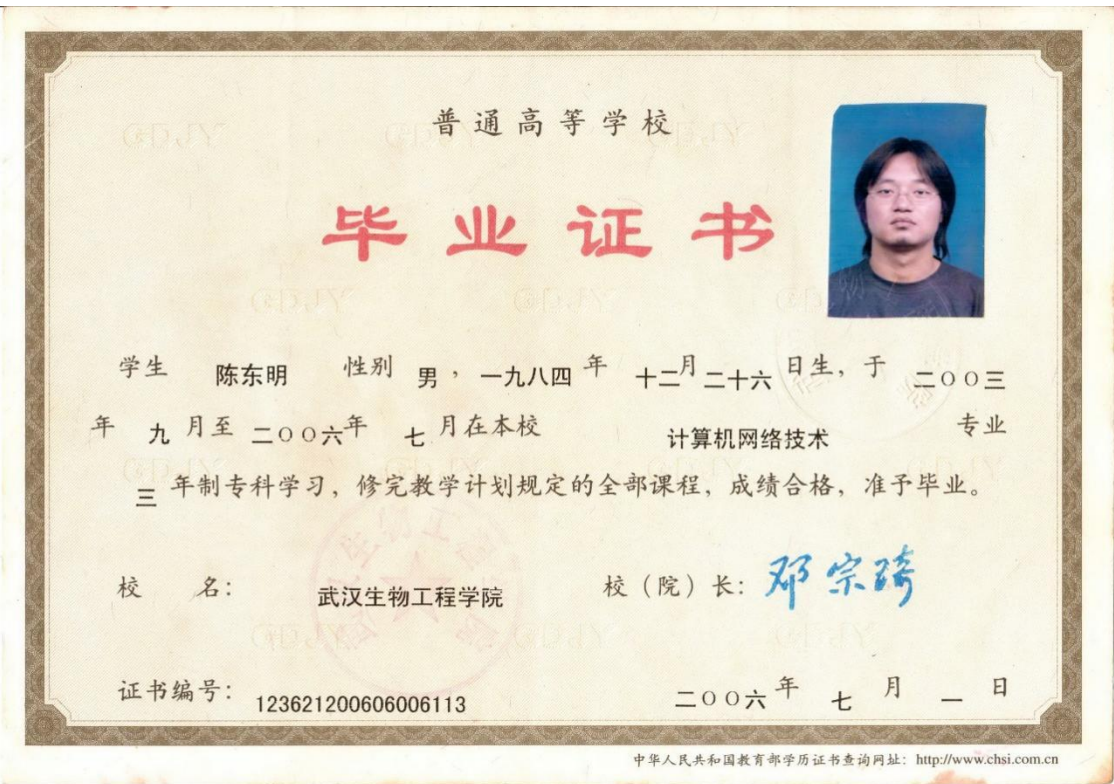 普通高等学校
毕业证书
学生 陈东明 性别 男，一九八四 年 十二月 二十六 日生，于 二００三
年 九 月至 二００六年 七 月在本校 计算机网络技术 专业
三 年制专科学习，修完教学计划规定的全部课程，成绩合格，准予毕业。
校 名： 武汉生物工程学院 校（院）长： 邓宗琦
证书编号： 123621200606006113 二００六 年 七 月 一 日
中华人民共和国教育部学历证书查询网址：http://www.chsi.com.cn